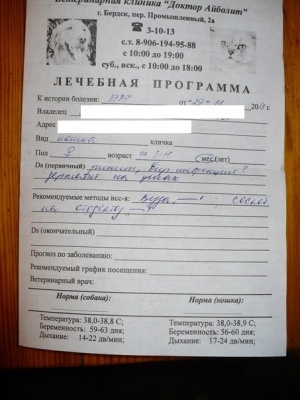 Ветеринарная клиника "Доктор Айболит"
г. Бердск, пер. Промышленный, 2а
3-10-13
с.т. 8-906-194-95-88
с 10:00 до 19:00
суб., вск., с 10:00 до 18:00
ЛЕЧЕБНАЯ ПРОГРАММА
К истории болезни: от 200 г.
Владелец
Адрес
Вид кошка кличка
Пол возраст (мес)(лет)
Ds (первичный) вир инфекция?
на ушах
Рекомендуемые методы исс-я:
Ds (окончательный)
Прогноз по заболеванию:
Рекомендуемый график посещения:
Ветеринарный врач:
Норма (собака): Норма (кошка):
Температура: 38,0-38,8 С; Температура: 38,0-38,9 С;
Беременность: 59-63 дня; Беременность: 56-60 дней;
Дыхание: 14-22 дв/мин; Дыхание: 17-24 дв/мин;